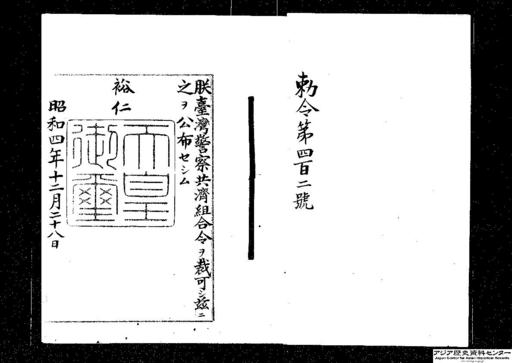 勅令第四百二號
朕臺灣警察共濟組合令ヲ裁可シ茲ニ
之ヲ公布セシム
裕仁
天皇御璽
昭和四年十二月二十八日
アジア歴史資料センター
Japan Center for Asian Historical Records